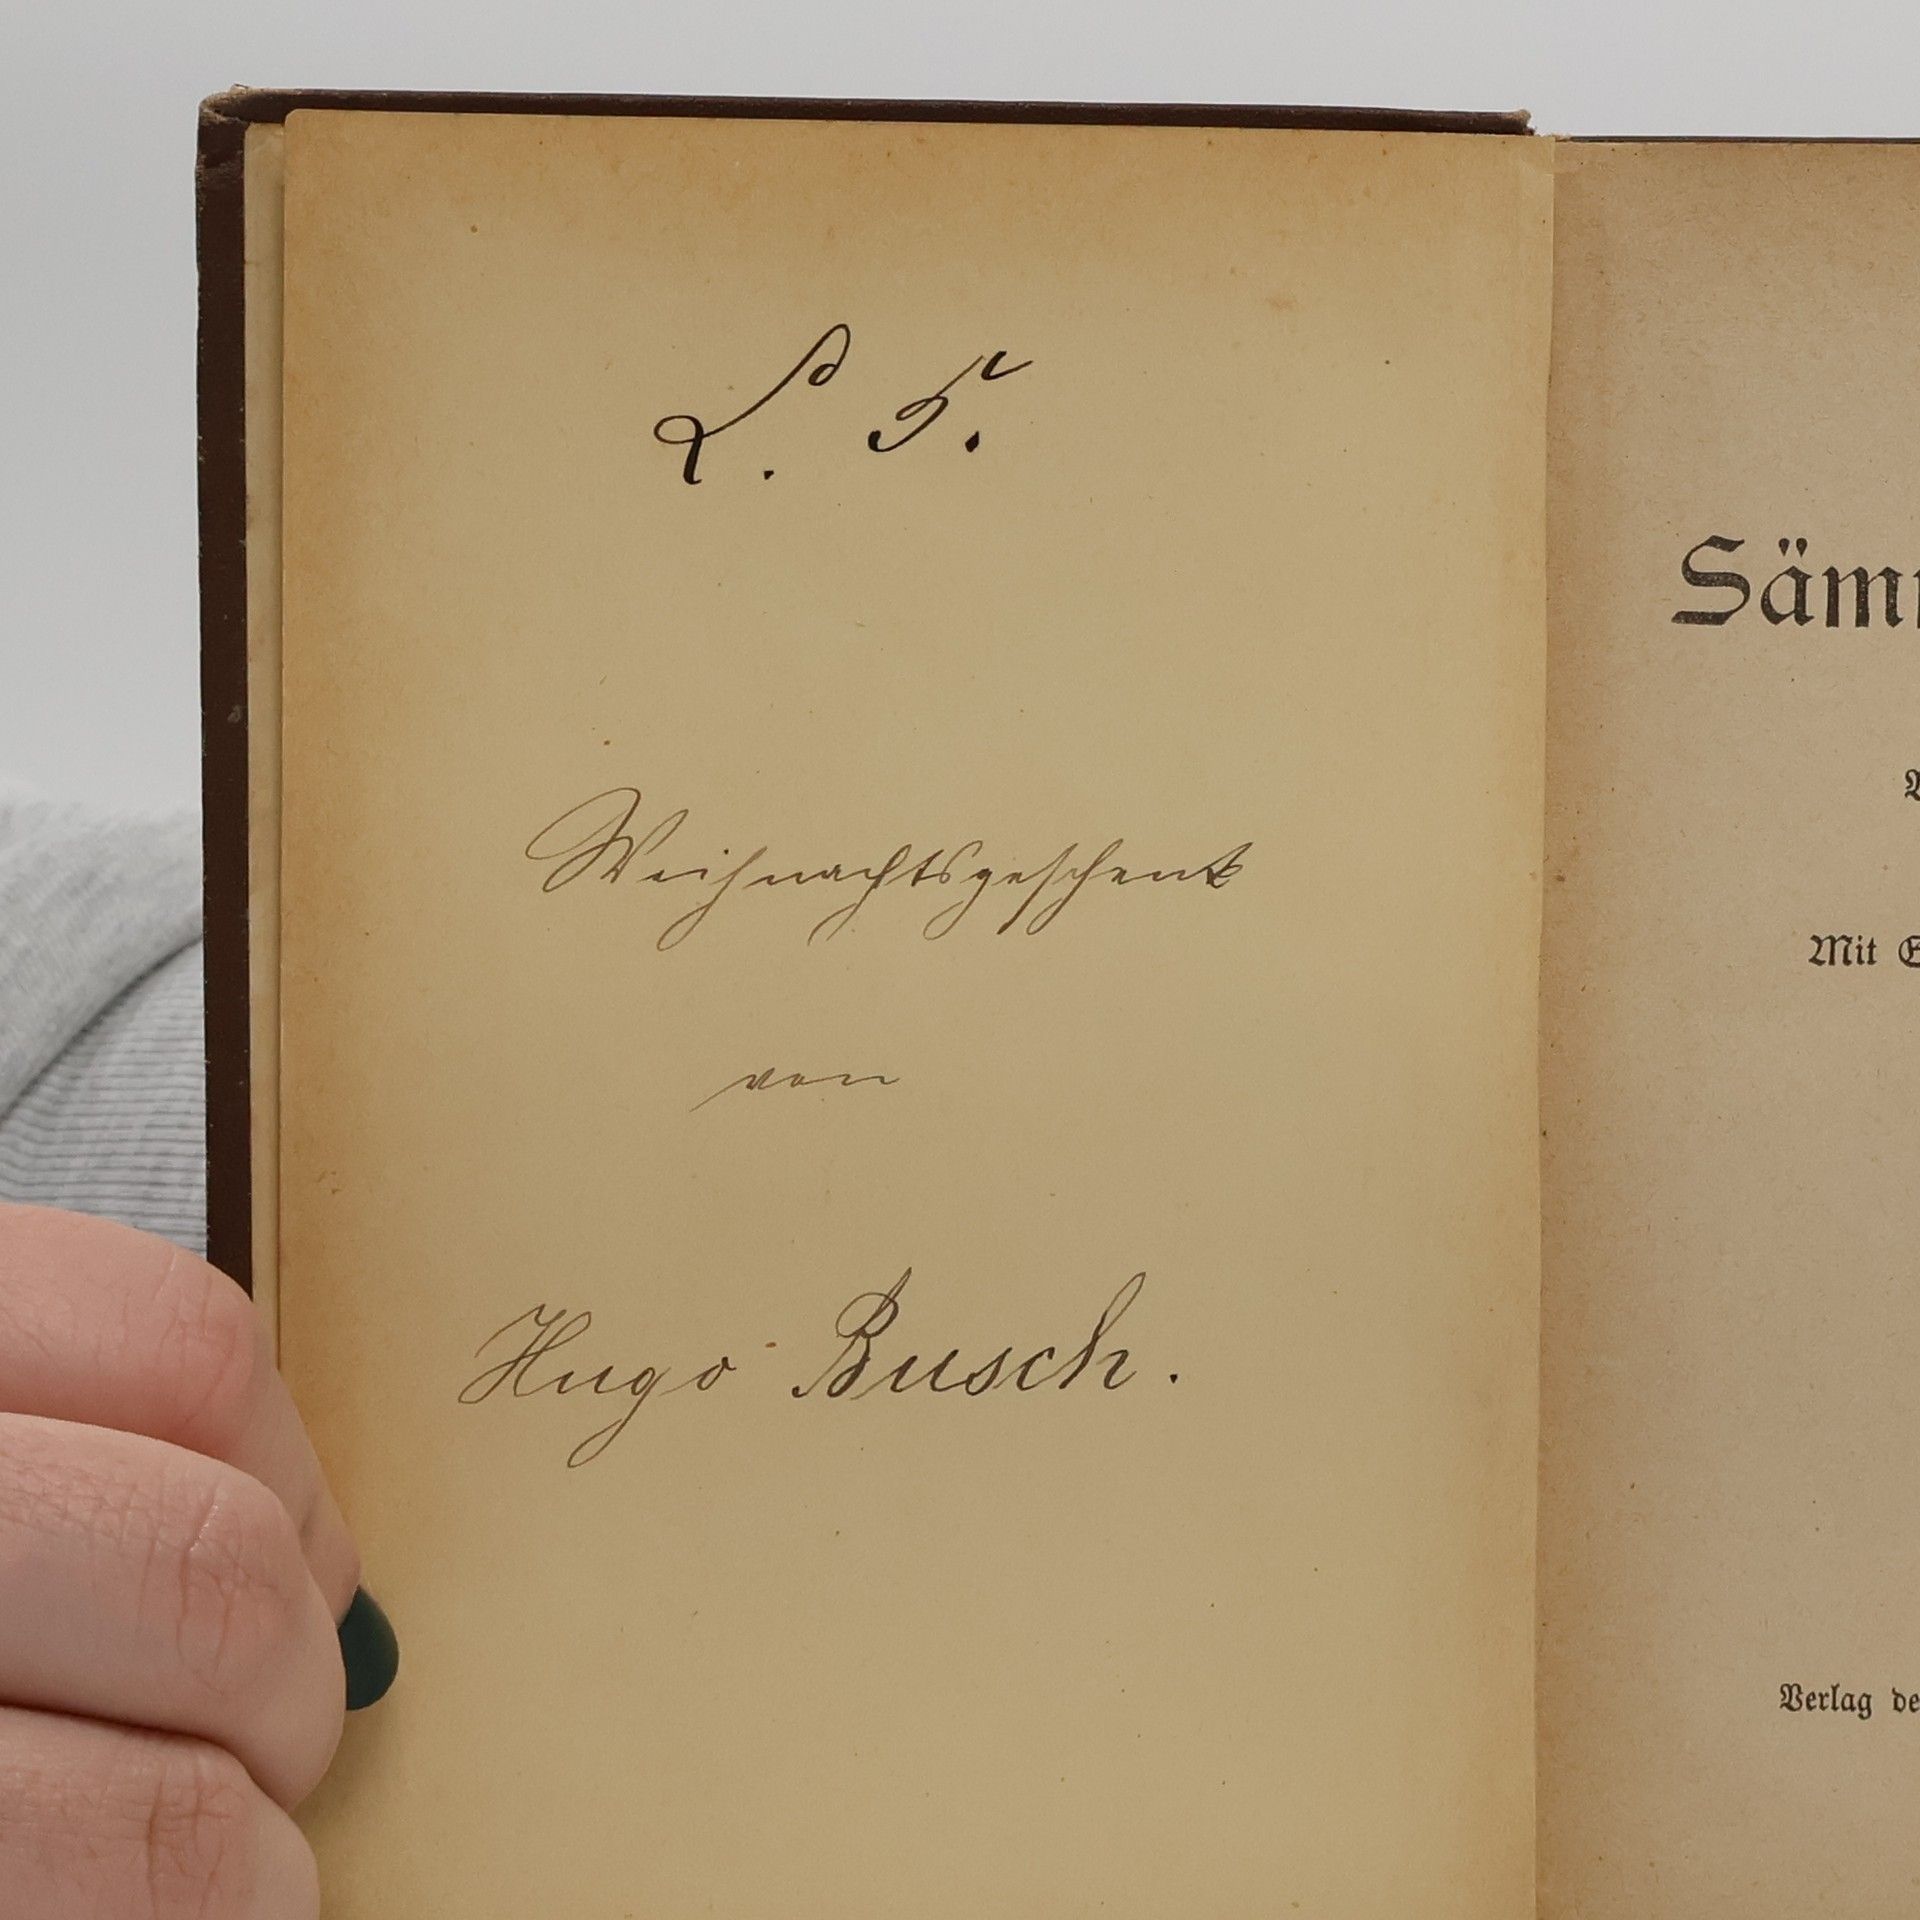 L. 5.
Weihnachtsgeschenk
von
Hugo Busch.
Mit
Verlag